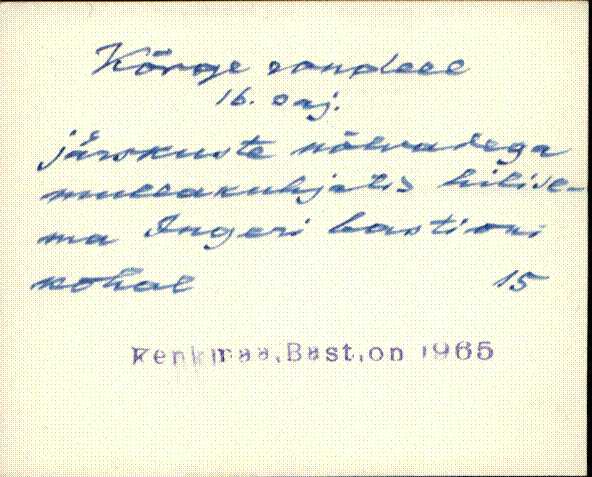 Kõrge rondeel
16. saj.
järskuste nõlvadega
mullakuhjatis hilise-
ma Ingeri bastioni
kohal 15
Kenkmaa, Bastion 1965